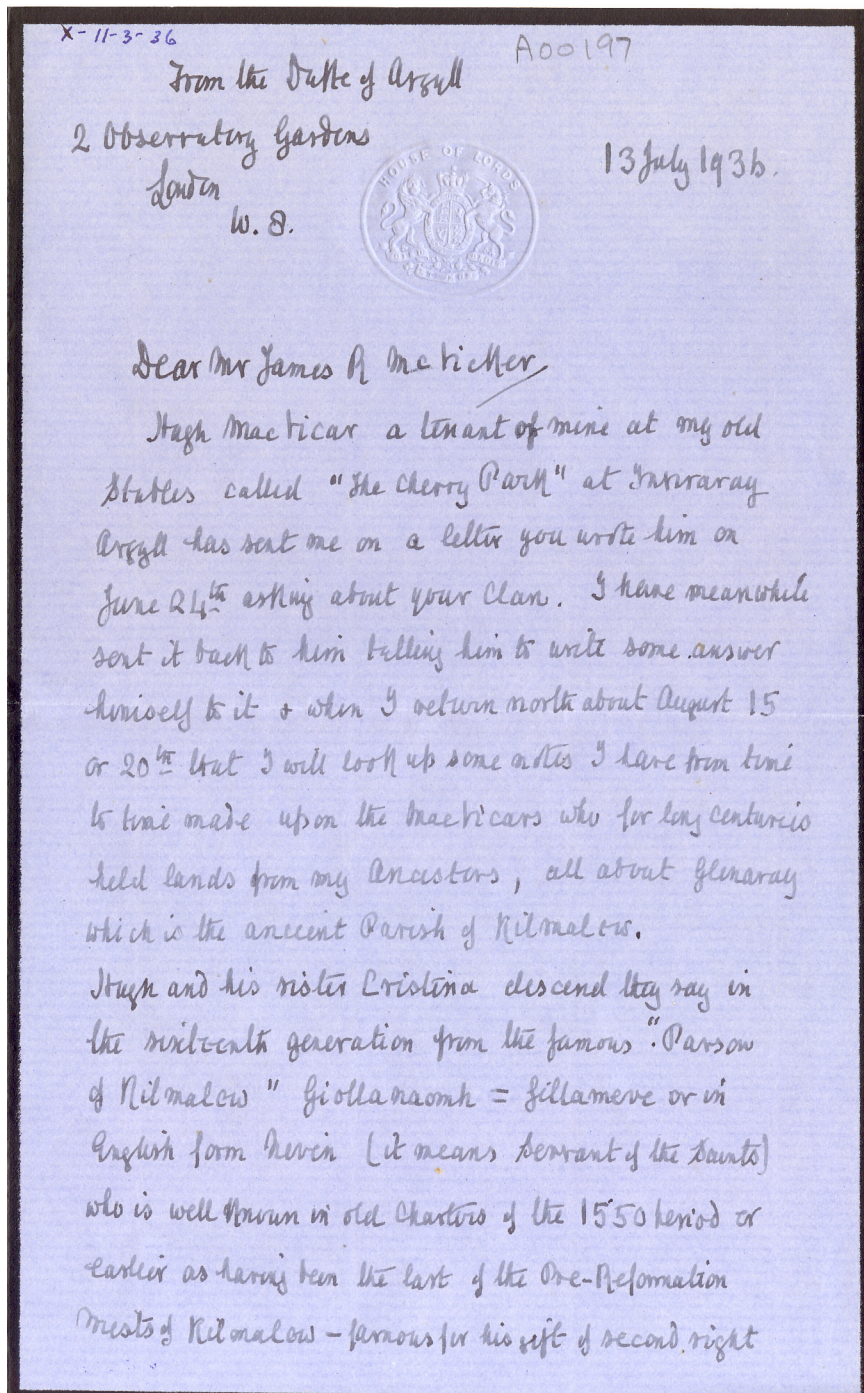 X- 11-3-36
A00197
From the Duke of Argyll
2 Observatory Gardens
13 July 1936.
London
W. 8.
HOUSE OF LORDS
Dear Mr James R McVicker
Hugh MacVicar a tenant of mine at my old
Stables called "The Cherry Park" at Inveraray
Argyll has sent me on a letter you wrote him on
June 24th asking about your Clan. I have meanwhile
sent it back to him telling him to write some answer
himself to it & when I return north about August 15
or 20th that I will look up some notes I have from time
to time made upon the MacVicars who for long centuries
held lands from my Ancestors, all about Glenaray
which is the ancient Parish of Kilmalew.
Hugh and his sister Cristina descend they say in
the sixteenth generation from the famous "Parson
of Kilmalew" Giollanaomh = Gillaneve or in
English form Nevin (it means Servant of the Saints)
who is well known in old Charters of the 1550 period or
earlier as having been the last of the Pre-Reformation
Priests of Kilmalew - famous for his gift of second sight